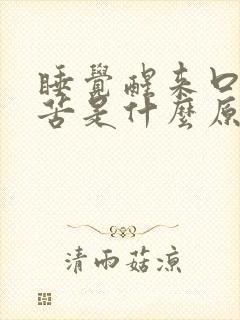 睡覺醒來口
苦是什麼原
清雨菇涼